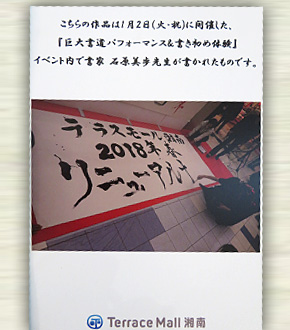 こちらの作品は1月2日(火・祝)に開催した、
『巨大書道パフォーマンス&書き初め体験』
イベント内で書家 石原美歩先生が書かれたものです。
テラスモール湘南
2018年 春
リニューアル
Terrace Mall 湘南